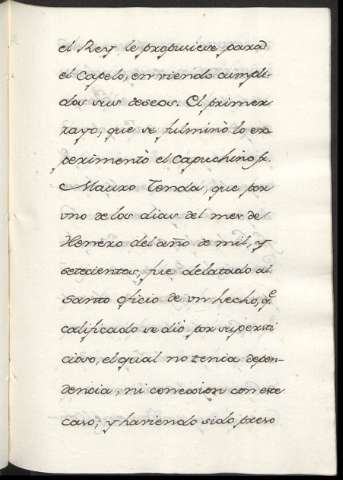 el Rey le propusiese para
el Capelo, en viendo cumpli-
dos sus deseos. El primer
rayo, que se fulminò lo ex-
perimentò el Capuchino fr.
Mauro Tenda, que por
uno de los dias del mes de
Henero del año de mil, y
setecientos, fue delatado al
Santo oficio de un hecho, q.e
calificado se diò por supersti
cioso, el qual no tenia depen-
dencia, ni conexion con este
caso; y haviendo sido preso